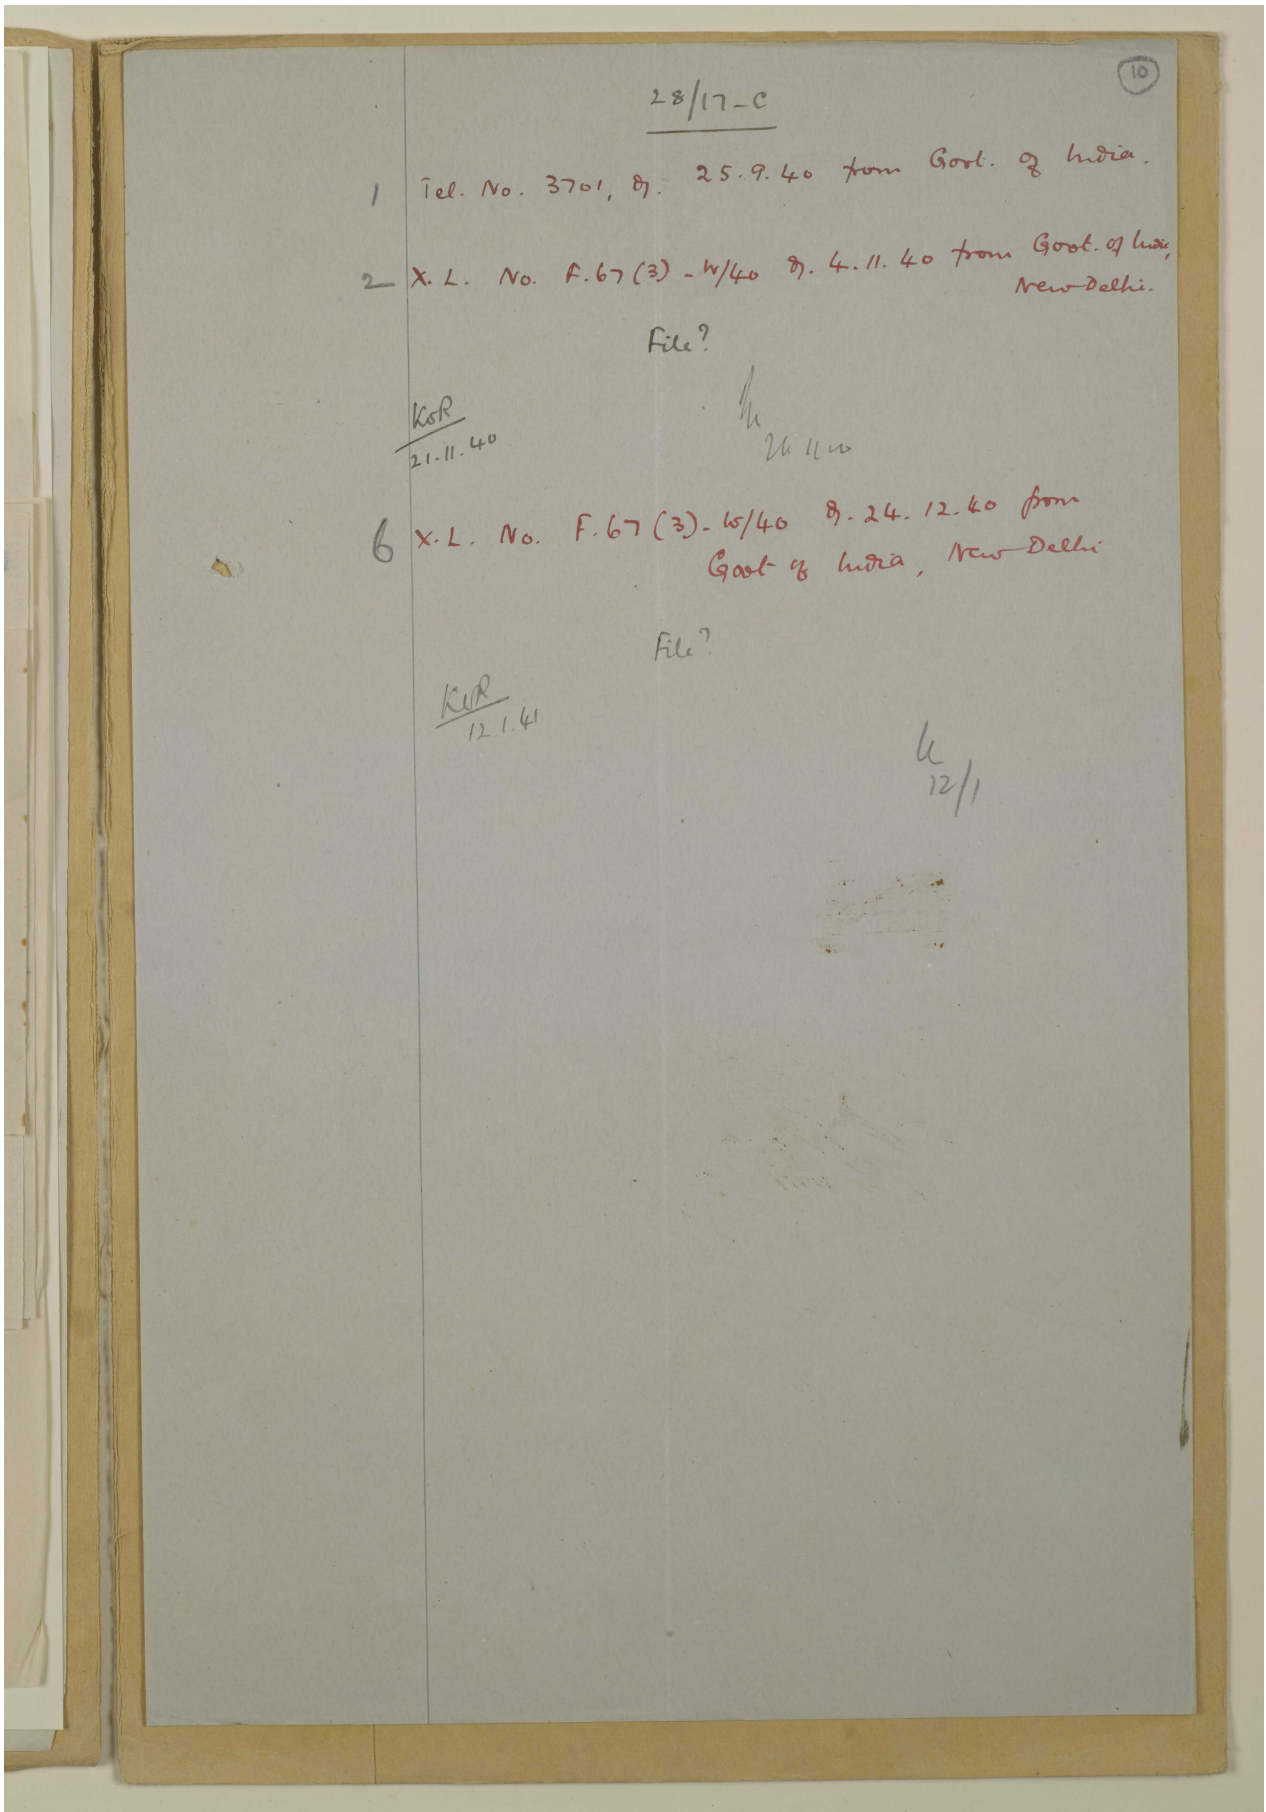 10
28/17-C
1 Tel. No. 3701, d. 25.9.40 from Govt. of India.
2 X.L. No. F.67(3)-W/40 d. 4.11.40 from Govt. of India,
New Delhi.
File?
KVR
21.11.40
6 X.L. No. F.67(3)-W/40 d. 24.12.40 from
Govt of India, New Delhi
File?
KVR
12.1.41
12/1